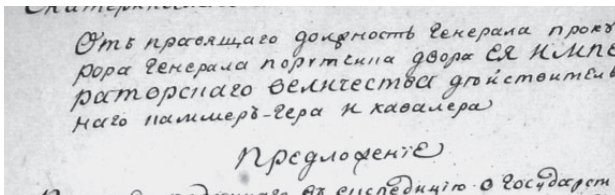 Отъ правящаго должность генерала проку
рора генерала порутчика двора ЕЯ ИМПЕ
раторскаго величества дѣйствитель
наго каммеръ-гера и кавалера
Предложенiе
въ експедицiю о государст